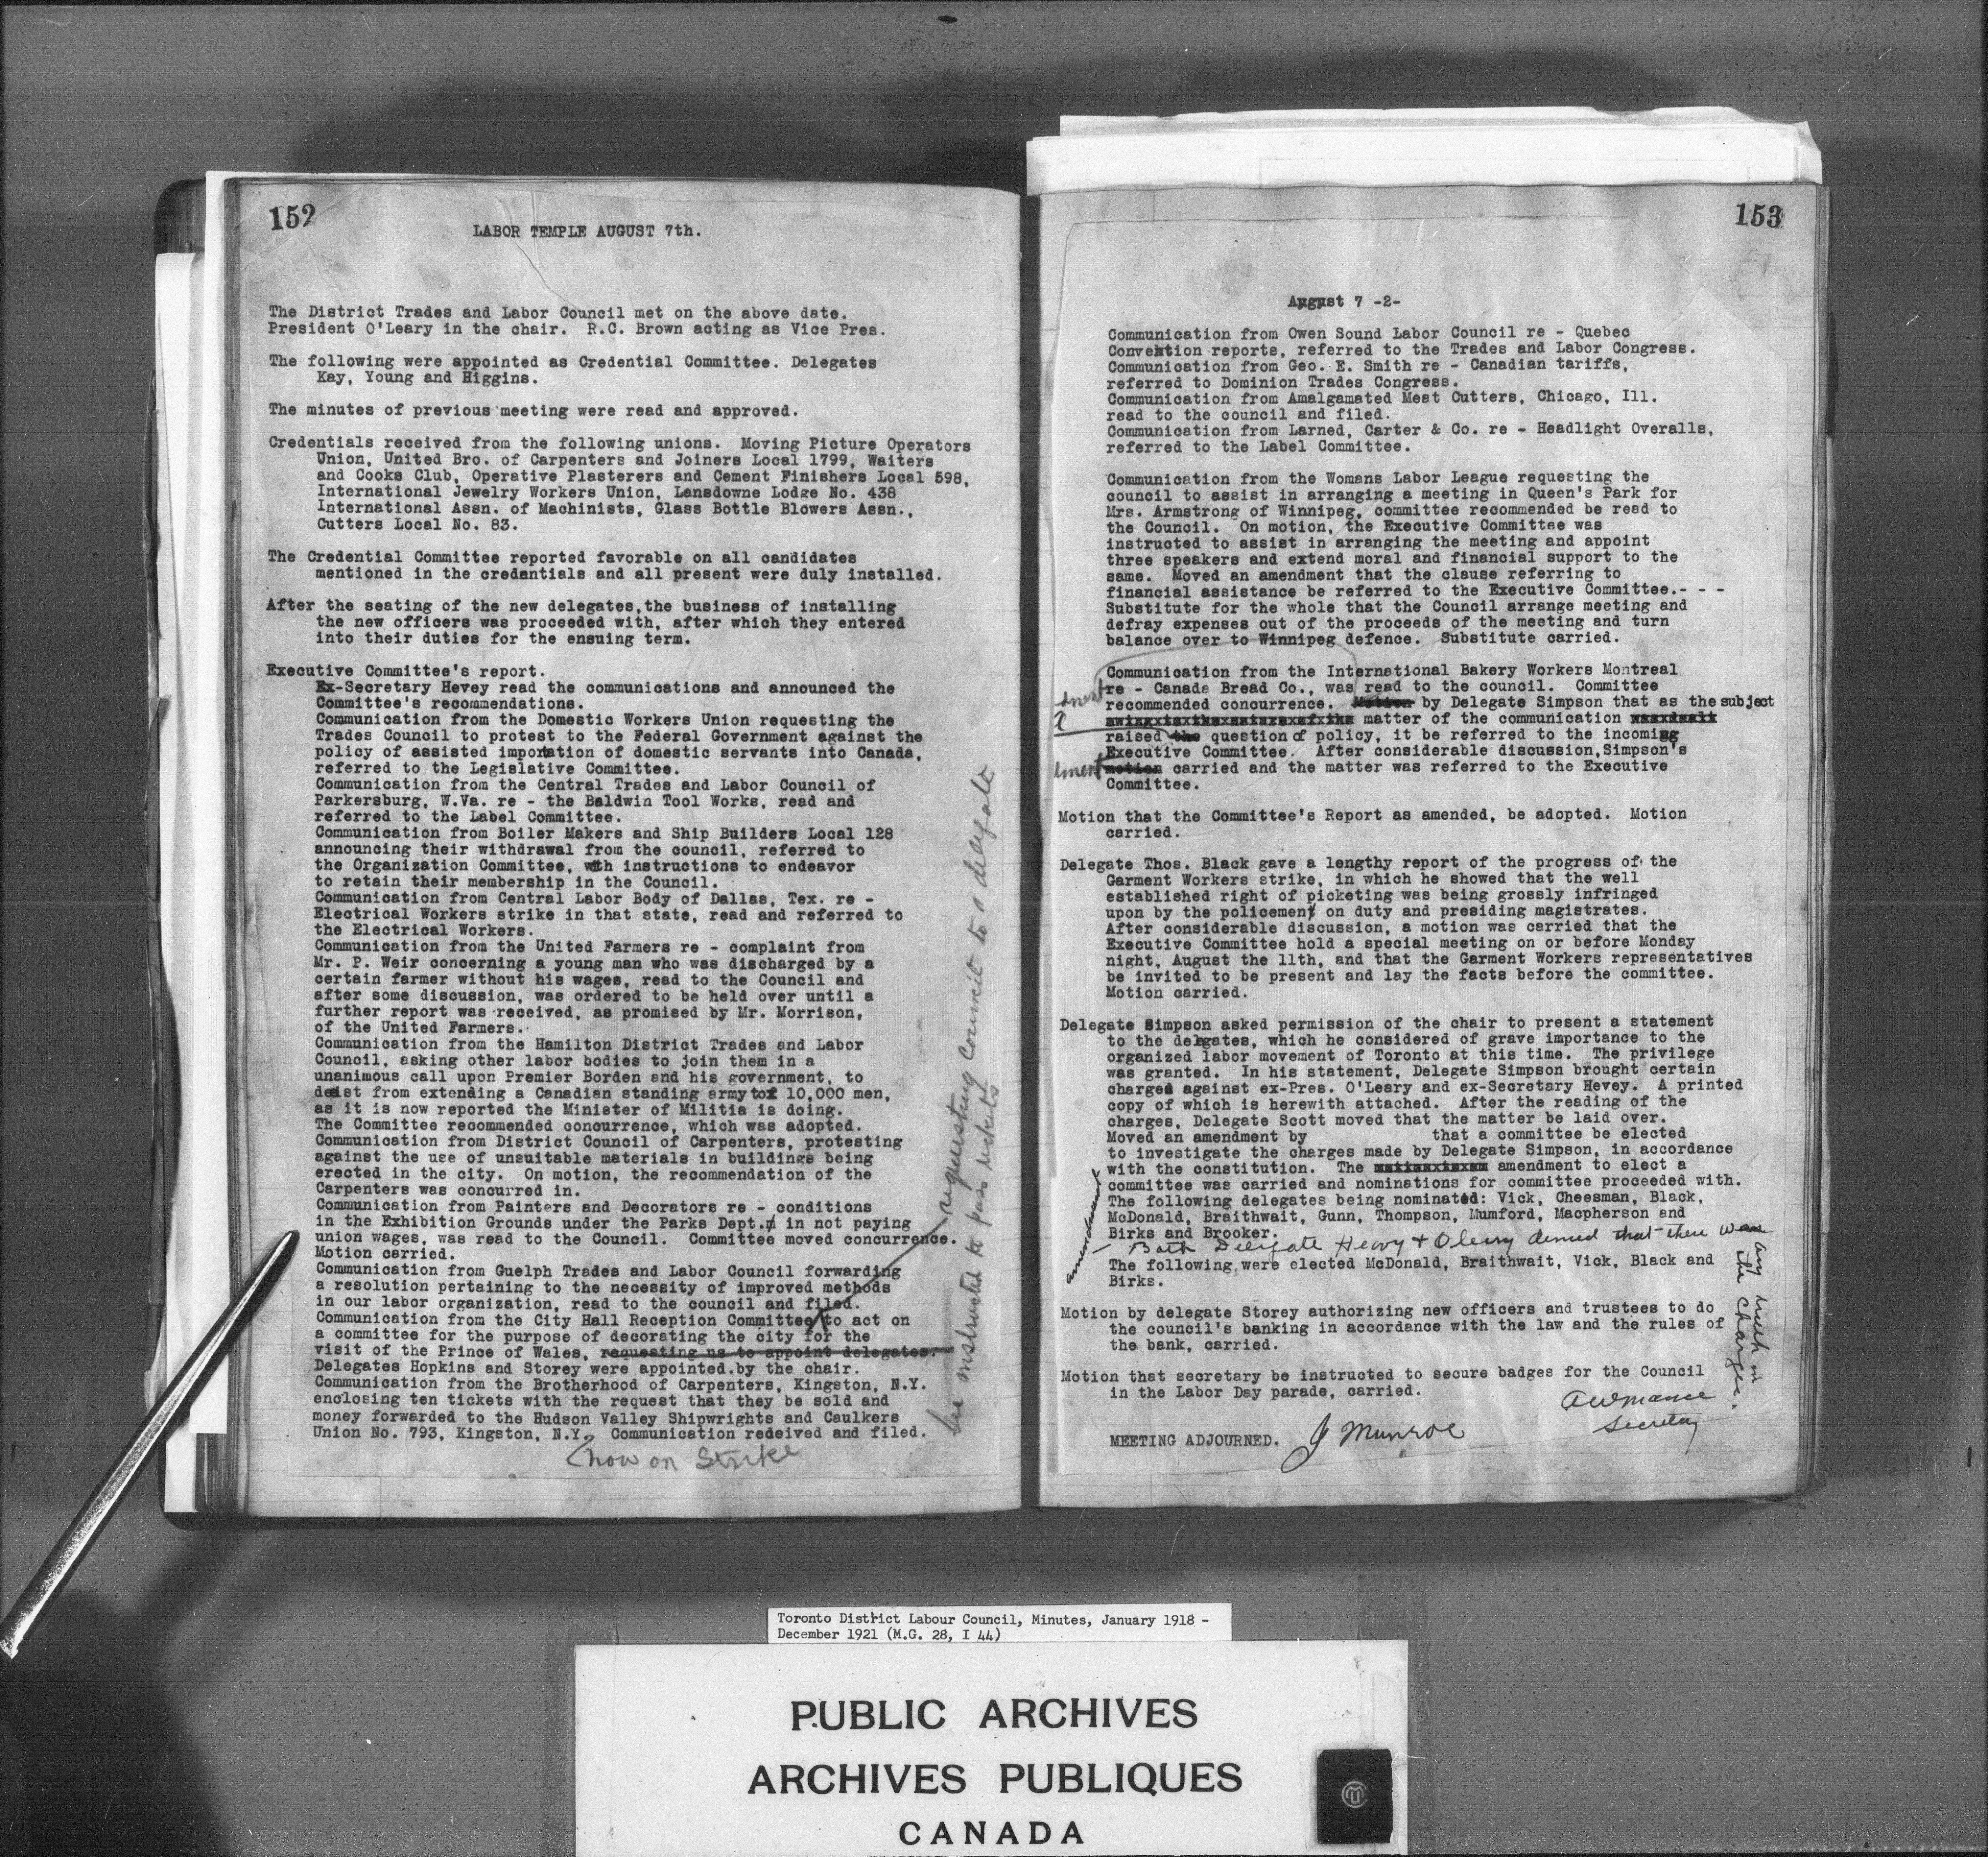 152
LABOR TEMPLE AUGUST 7th.
The District Trades and Labor Council met on the above date.
President O'Leary in the chair. R.C. Brown acting as Vice Pres.
The following were appointed as Credential Committee. Delegates
Kay, Young and Higgins.
The minutes of previous meeting were read and approved.
Credentials received from the following unions. Moving Picture Operators
Union, United Bro. of Carpenters and Joiners Local 1799, Waiters
and Cooks Club, Operative Plasterers and Cement Finishers Local 598,
International Jewelry Workers Union, Lansdowne Lodge No. 438
International Assn. of Machinists, Glass Bottle Blowers Assn.,
Cutters Local No. 83.
The Credential Committee reported favorable on all candidates
mentioned in the credentials and all present were duly installed.
After the seating of the new delegates,the business of installing
the new officers was proceeded with, after which they entered
into their duties for the ensuing term.
Executive Committee's report.
Ex-Secretary Hevey read the communications and announced the
Committee's recommendations.
Communication from the Domestic Workers Union requesting the
Trades Council to protest to the Federal Government against the
policy of assisted importation of domestic servants into Canada,
referred to the Legislative Committee.
Communication from the Central Trades and Labor Council of
Parkersburg, W.Va. re - the Baldwin Tool Works, read and
referred to the Label Committee.
Communication from Boiler Makers and Ship Builders Local 128
announcing their withdrawal from the council, referred to
the Organization Committee, with instructions to endeavor
to retain their membership in the Council.
Communication from Central Labor Body of Dallas, Tex. re -
Electrical Workers strike in that state, read and referred to
the Electrical Workers.
Communication from the United Farmers re - complaint from
Mr. P. Weir concerning a young man who was discharged by a
certain farmer without his wages, read to the Council and
after some discussion, was ordered to be held over until a
further report was received, as promised by Mr. Morrison,
of the United Farmers.
Communication from the Hamilton District Trades and Labor
Council, asking other labor bodies to join them in a
unanimous call upon Premier Borden and his government, to
desist from extending a Canadian standing army to 10,000 men,
as it is now reported the Minister of Militia is doing.
The Committee recommended concurrence, which was adopted.
Communication from District Council of Carpenters, protesting
against the use of unsuitable materials in buildings being
erected in the city. On motion, the recommendation of the
Carpenters was concurred in.
Communication from Painters and Decorators re - conditions
in the Exhibition Grounds under the Parks Dept. in not paying
union wages, was read to the Council. Committee moved concurrence.
Motion carried.
Communication from Guelph Trades and Labor Council forwarding
a resolution pertaining to the necessity of improved methods
in our labor organization, read to the council and filed.
Communication from the City Hall Reception Committee to act on
a committee for the purpose of decorating the city for the
visit of the Prince of Wales, requesting us to appoint delegates.
Delegates Hopkins and Storey were appointed.by the chair.
Communication from the Brotherhood of Carpenters, Kingston, N.Y.
enclosing ten tickets with the request that they be sold and
money forwarded to the Hudson Valley Shipwrights and Caulkers
Union No. 793, Kingston, N.Y. Communication redeived and filed.
now on Strike
requesting Council to a delegate
be instructed to pass tickets
153
August 7 -2-
Communication from Owen Sound Labor Council re - Quebec
Convention reports, referred to the Trades and Labor Congress.
Communication from Geo. E. Smith re - Canadian tariffs,
referred to Dominion Trades Congress.
Communication from Amalgamated Meat Cutters, Chicago, Ill.
read to the council and filed.
Communication from Larned, Carter & Co. re - Headlight Overalls,
referred to the Label Committee.
Communication from the Womans Labor League requesting the
council to assist in arranging a meeting in Queen's Park for
Mrs. Armstrong of Winnipeg, committee recommended be read to
the Council. On motion, the Executive Committee was
instructed to assist in arranging the meeting and appoint
three speakers and extend moral and financial support to the
same. Moved an amendment that the clause referring to
financial assistance be referred to the Executive Committee.- - -
Substitute for the whole that the Council arrange meeting and
defray expenses out of the proceeds of the meeting and turn
balance over to Winnipeg defence. Substitute carried.
Communication from the International Bakery Workers Montreal
re - Canada Bread Co., was read to the council. Committee
recommended concurrence. Motion by Delegate Simpson that as the subject
matter of the communication
raised the question of policy, it be referred to the incoming
Executive Committee. After considerable discussion,Simpson's
motion carried and the matter was referred to the Executive
Committee.
Motion that the Committee's Report as amended, be adopted. Motion
carried.
Delegate Thos. Black gave a lengthy report of the progress of the
Garment Workers strike, in which he showed that the well
established right of picketing was being grossly infringed
upon by the policemen on duty and presiding magistrates.
After considerable discussion, a motion was carried that the
Executive Committee hold a special meeting on or before Monday
night, August the 11th, and that the Garment Workers representatives
be invited to be present and lay the facts before the committee.
Motion carried.
Delegate Simpson asked permission of the chair to present a statement
to the delegates, which he considered of grave importance to the
organized labor movement of Toronto at this time. The privilege
was granted. In his statement, Delegate Simpson brought certain
charges against ex-Pres. O'Leary and ex-Secretary Hevey. A printed
copy of which is herewith attached. After the reading of the
charges, Delegate Scott moved that the matter be laid over.
Moved an amendment by that a committee be elected
to investigate the charges made by Delegate Simpson, in accordance
with the constitution. The amendment to elect a
committee was carried and nominations for committee proceeded with.
The following delegates being nominated: Vick, Cheesman, Black,
McDonald, Braithwait, Gunn, Thompson, Mumford, Macpherson and
Birks and Brooker.
Both Delegate Hevey & Oleary denied that there was
any truth in
the Charges.
amendment
The following were elected McDonald, Braithwait, Vick, Black and
Birks.
Motion by delegate Storey authorizing new officers and trustees to do
the council's banking in accordance with the law and the rules of
the bank, carried.
Motion that secretary be instructed to secure badges for the Council
in the Labor Day parade, carried.
MEETING ADJOURNED. J Munroe
Secretary
Toronto District Labour Council, Minutes, January 1918 -
December 1921 (M.G. 28, I 44)
PUBLIC ARCHIVES
ARCHIVES PUBLIQUES
CANADA